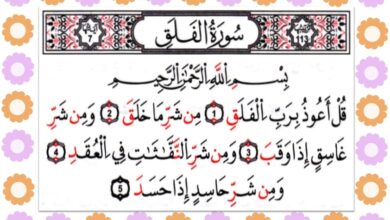 سُورَةُ الْفَلَقِ
بِسْمِ اللَّهِ الرَّحْمَٰنِ الرَّحِيمِ
قُلْ أَعُوذُ بِرَبِّ الْفَلَقِ 1 مِن شَرِّ مَا خَلَقَ 2 وَمِن شَرِّ
غَاسِقٍ إِذَا وَقَبَ 3 وَمِن شَرِّ النَّفَّاثَاتِ فِي الْعُقَدِ 4
وَمِن شَرِّ حَاسِدٍ إِذَا حَسَدَ 5